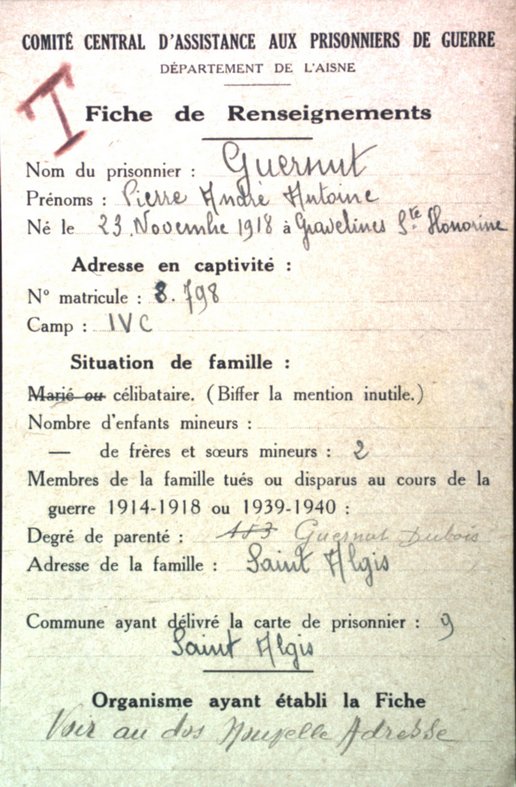 COMITÉ CENTRAL D'ASSISTANCE AUX PRISONNIERS DE GUERRE
DÉPARTEMENT DE L'AISNE
T
Fiche de Renseignements
Nom du prisonnier : Guernut
Prénoms : Pierre André Antoine
Né le 23 Novembre 1918 à Gravelines Ste Honorine
Adresse en captivité :
N° matricule : 8.798
Camp : IV C
Situation de famille :
Marié ou célibataire. (Biffer la mention inutile.)
Nombre d'enfants mineurs :
— de frères et sœurs mineurs : 2
Membres de la famille tués ou disparus au cours de la
guerre 1914-1918 ou 1939-1940 :
Degré de parenté : Guernut Dubois
Adresse de la famille : Saint Algis
Commune ayant délivré la carte de prisonnier : 9
Saint Algis
Organisme ayant établi la Fiche
Voir au dos Nouvelle Adresse